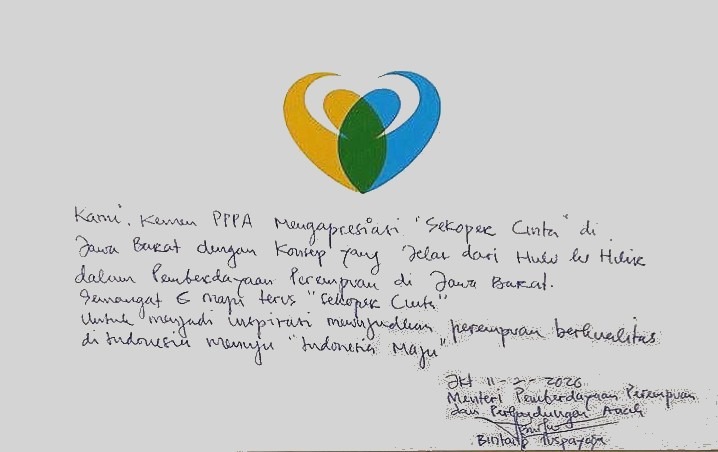 Kami. Kemen PPPA Mengapresiasi "Sekoper Cinta" di
Jawa Barat dengan Konsep yang Jelas dari Hulu ke Hilir
dalam Pemberdayaan Perempuan di Jawa Barat.
Semangat & maju terus "Sekoper Cinta"
Untuk menjadi inspirasi mewujudkan perempuan berkualitas
di Indonesia menuju "Indonesia Maju"
Jkt 11-2-2020
Menteri Pemberdayaan Perempuan
dan Perlindungan Anak
Bintang Puspayoga